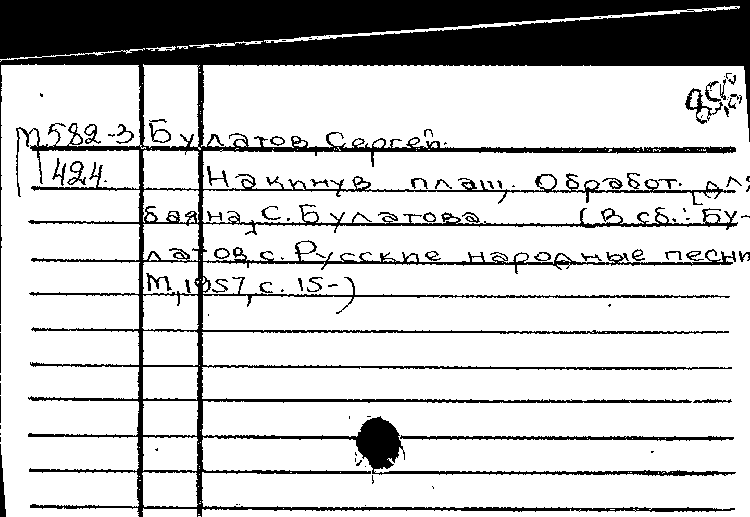 М582-3 Булатов, Сергей.
424. Накинув плащ. Обработ. [для
баяна] С. Булатова. (В сб.: Бу-
латов, с. Русские народные песни
М., 1957, с. 15-)